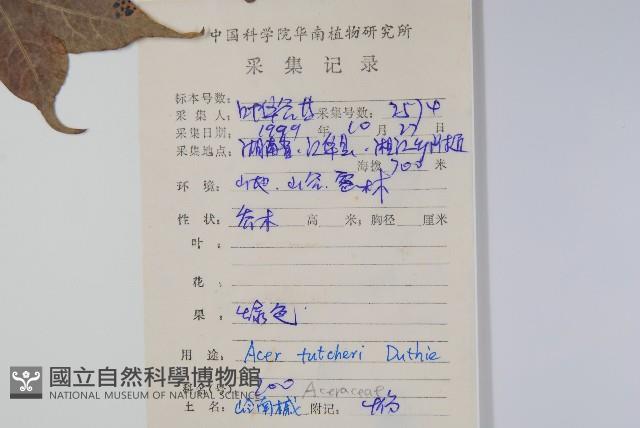 中国科学院华南植物研究所
采集记录
标本号数:
采集人: 叶华谷 采集号数: 2574
采集日期: 1999年10月27日
采集地点: 湖南省.江华县.湘江
海拨 700米
环境: 山地.山谷.密林
性状: 乔木 高 米; 胸径 厘米
叶:
花:
果: 绿色
用途: Acer tutcheri Duthie
200 Aceraceae
土名: 岭南槭 附记: 4份
國立自然科學博物館
NATIONAL MUSEUM OF NATURAL SCIENCE